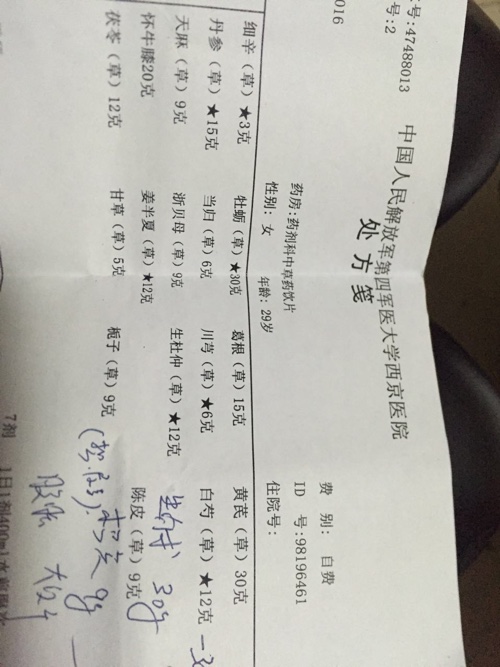 号:47488013
号:2
中国人民解放军第四军医大学西京医院
处方笺
费 别: 自费
016
药房:药剂科中草药饮片
ID 号:98196461
性别: 女 年龄: 29岁
住院号:
细辛(草)★3克 牡蛎(草)★30克 葛根(草)15克 黄芪(草)30克
丹参(草)★15克 当归(草)6克 川芎(草)★6克 白芍(草)★12克
天麻(草)9克 浙贝母(草)9克 生杜仲(草)★12克
怀牛膝20克 姜半夏(草)★12克 陈皮(草)9克
茯苓(草)12克 甘草(草)5克 栀子(草)9克
30g
9g
7剂 1日1剂400ml水煎服